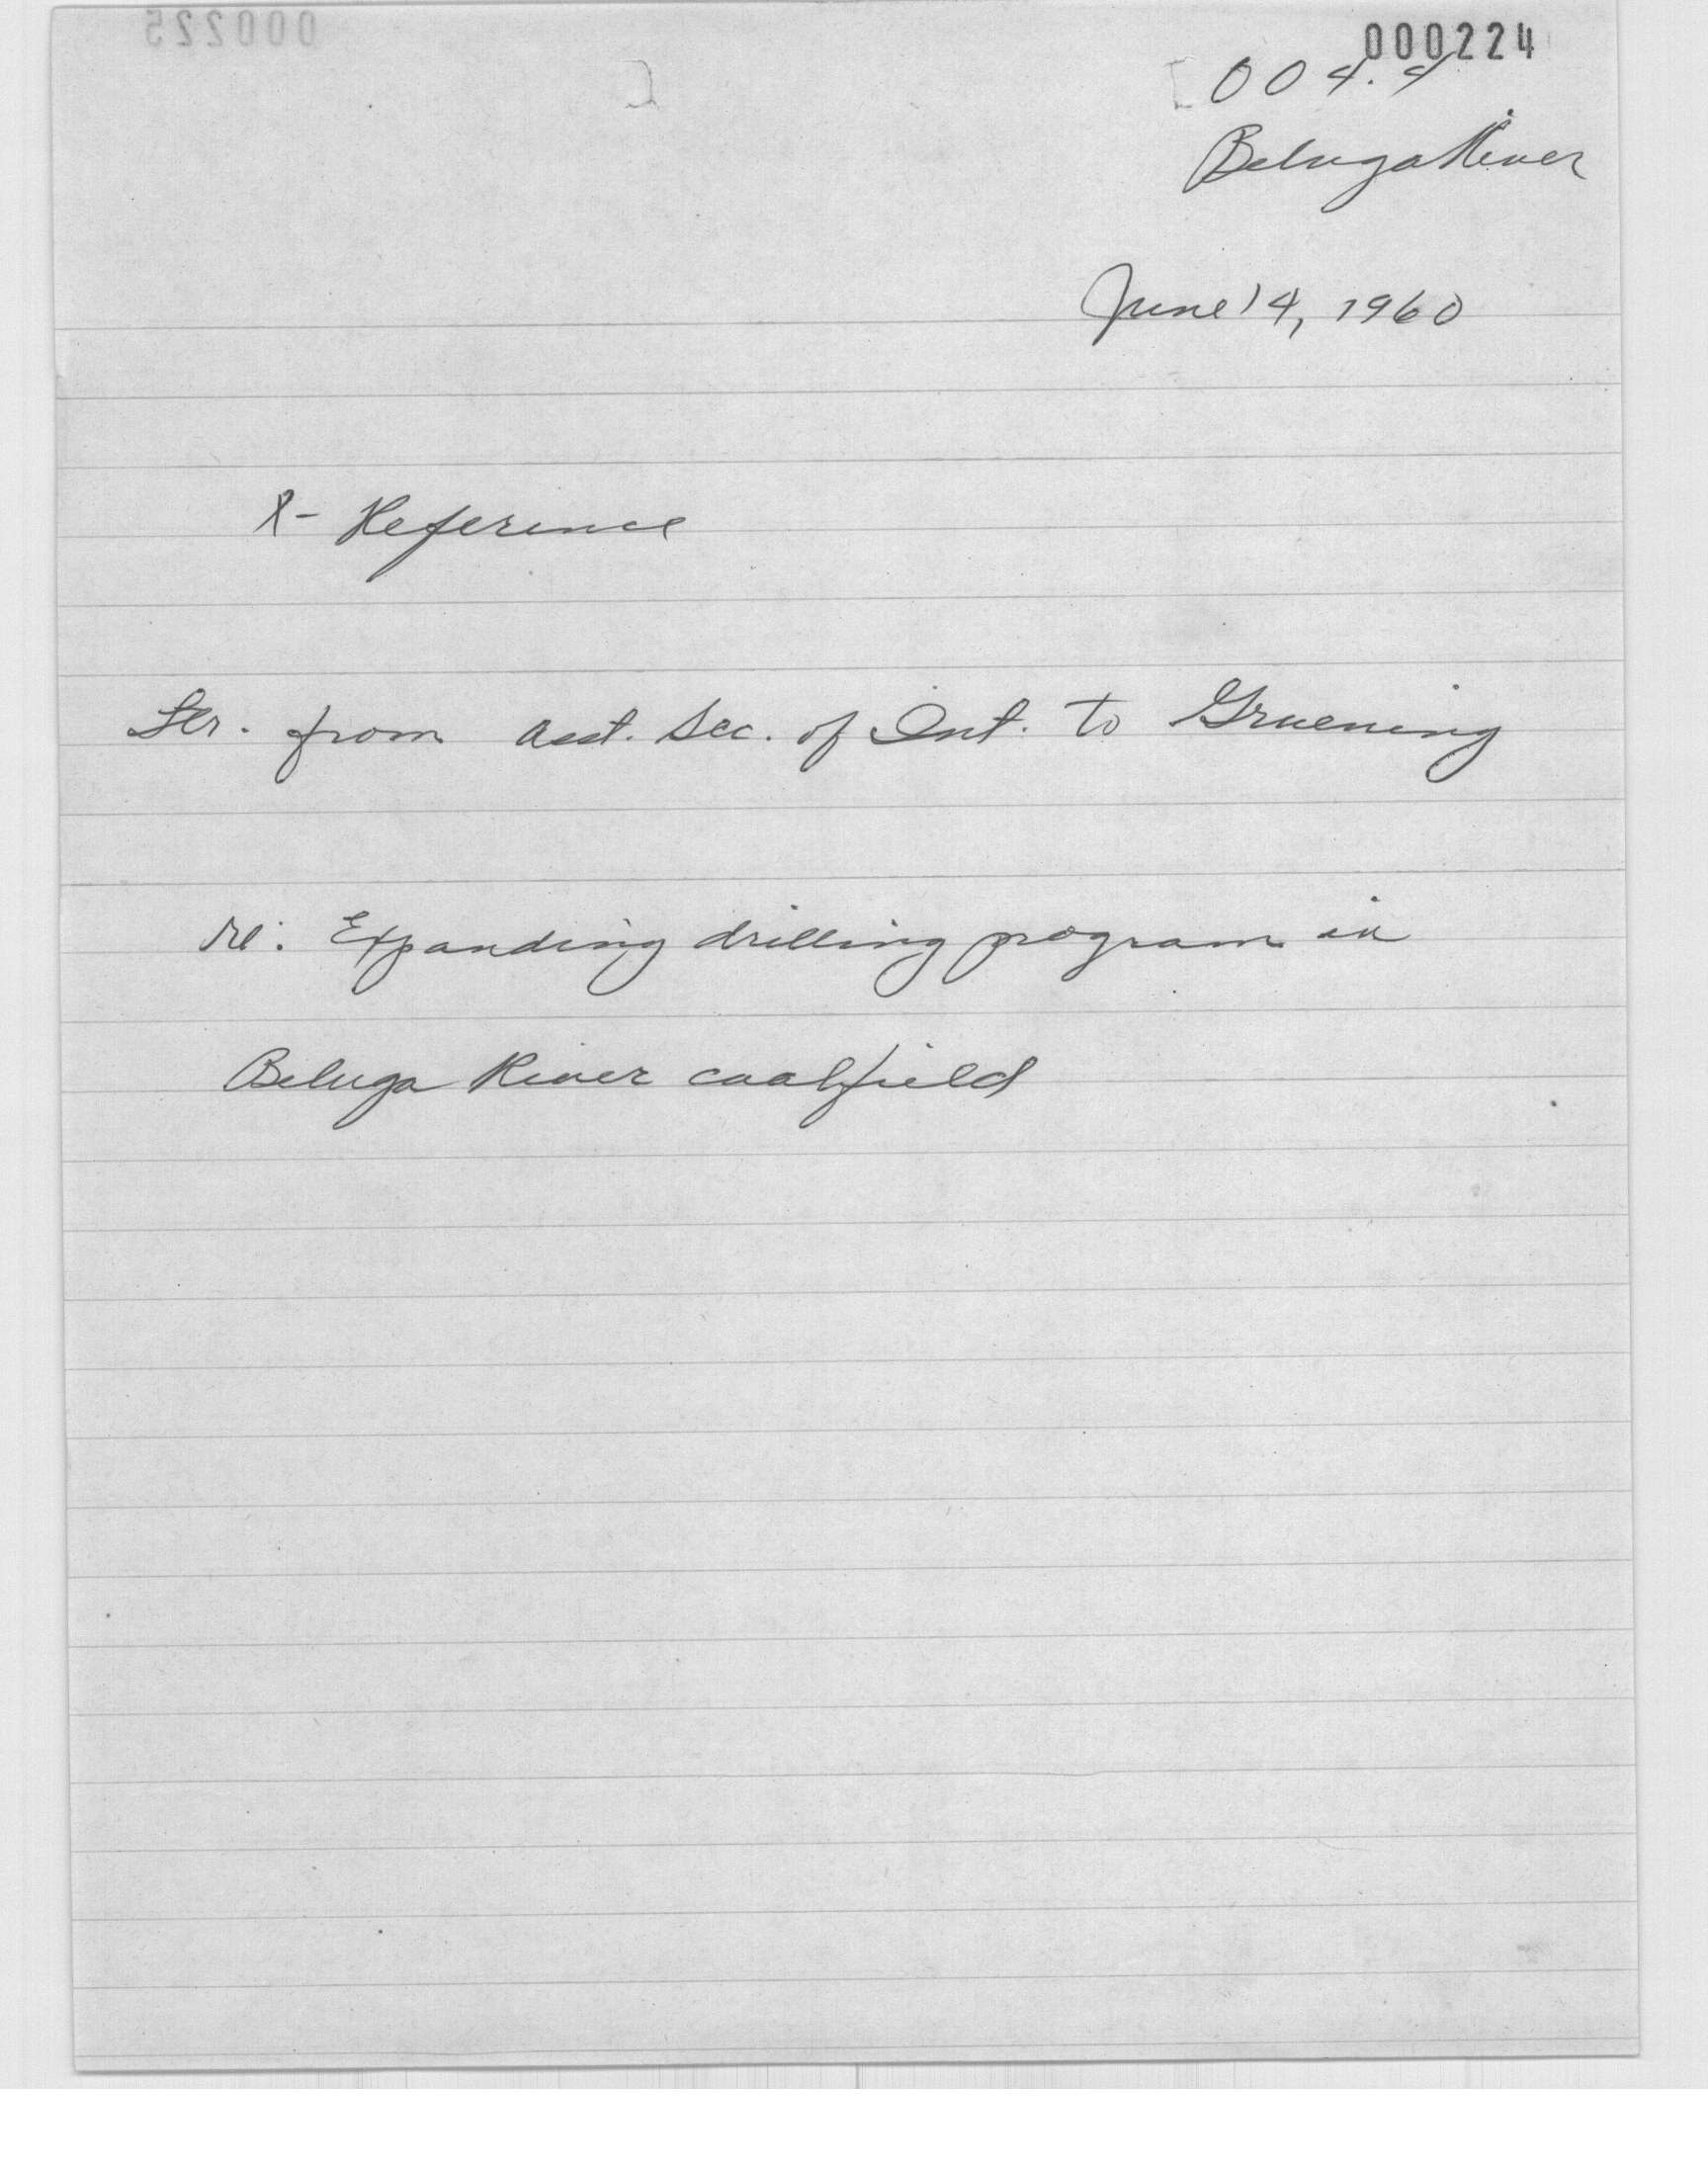 000225
000224
004.4
Beluga River
June 14, 1960
X- Reference
Ltr. from Asst. Sec. of Int. to Gruening
re: Expanding drilling program in
Beluga River coalfield